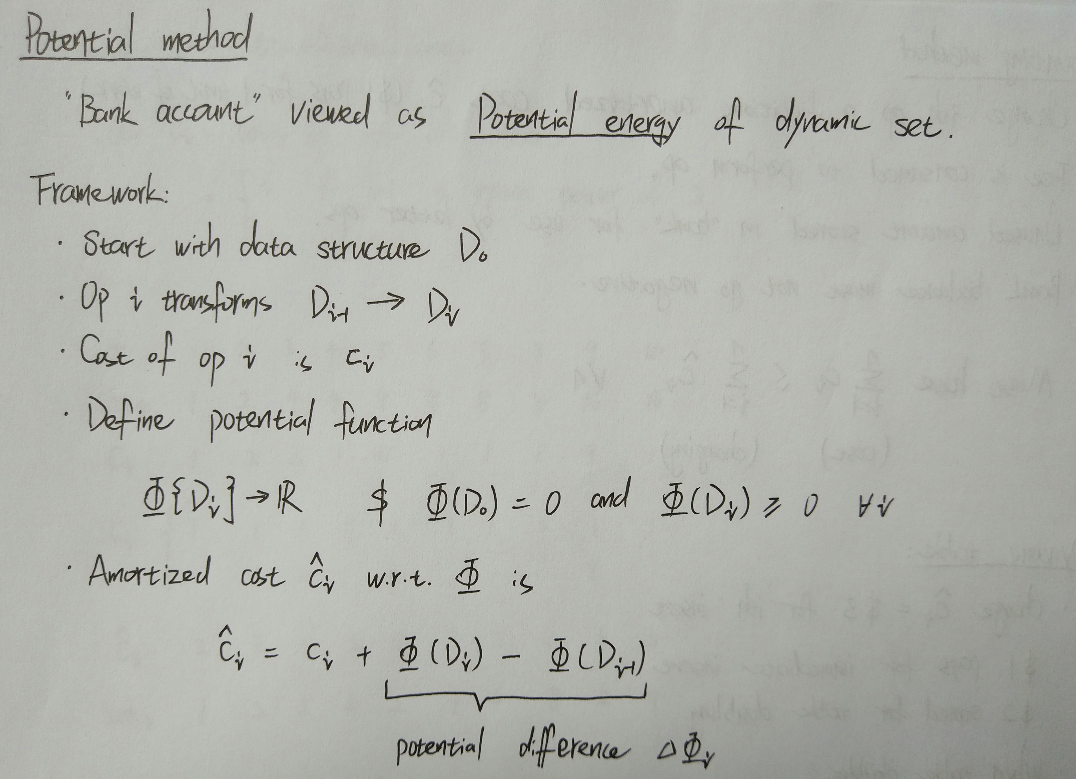 Potential method
"Bank account" viewed as Potential energy of dynamic set.
Framework:
· Start with data structure D₀
· Op i transforms Dᵢ₋₁ → Dᵢ
· Cost of op i is cᵢ
· Define potential function
Φ{Dᵢ} → ℝ $ Φ(D₀) = 0 and Φ(Dᵢ) ⩾ 0 ∀i
· Amortized cost ĉᵢ w.r.t. Φ is
ĉᵢ = cᵢ + Φ(Dᵢ) - Φ(Dᵢ₋₁)
potential difference ΔΦᵢ